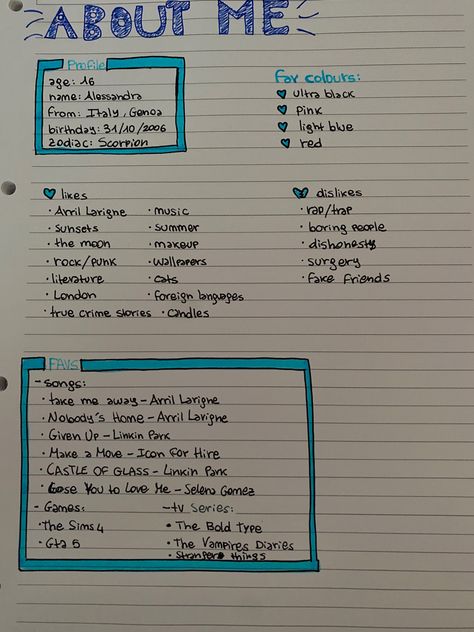 ABOUT ME
Profile
age: 16
name: Alessandra
from: Italy, Genoa
birthday: 31/10/2006
zodiac: Scorpion
fav colours:
ultra black
pink
light blue
red
likes
· Avril Lavigne
· sunsets
· the moon
· rock/punk
· literature
· London
· true crime stories
· music
· summer
· makeup
· wallpapers
· cats
· foreign languages
· candles
dislikes
· rap/trap
· boring people
· dishonesty
· surgery
· fake friends
FAVS
- songs:
· take me away - Avril Lavigne
· Nobody's Home - Avril Lavigne
· Given Up - Linkin Park
· Make a Move - Icon For Hire
· CASTLE OF GLASS - Linkin Park
· Lose You to Love Me - Selena Gomez
- Games:
· the Sims 4
· Gta 5
- tv Series:
· The Bold Type
· The Vampires Diaries
· Stranger things